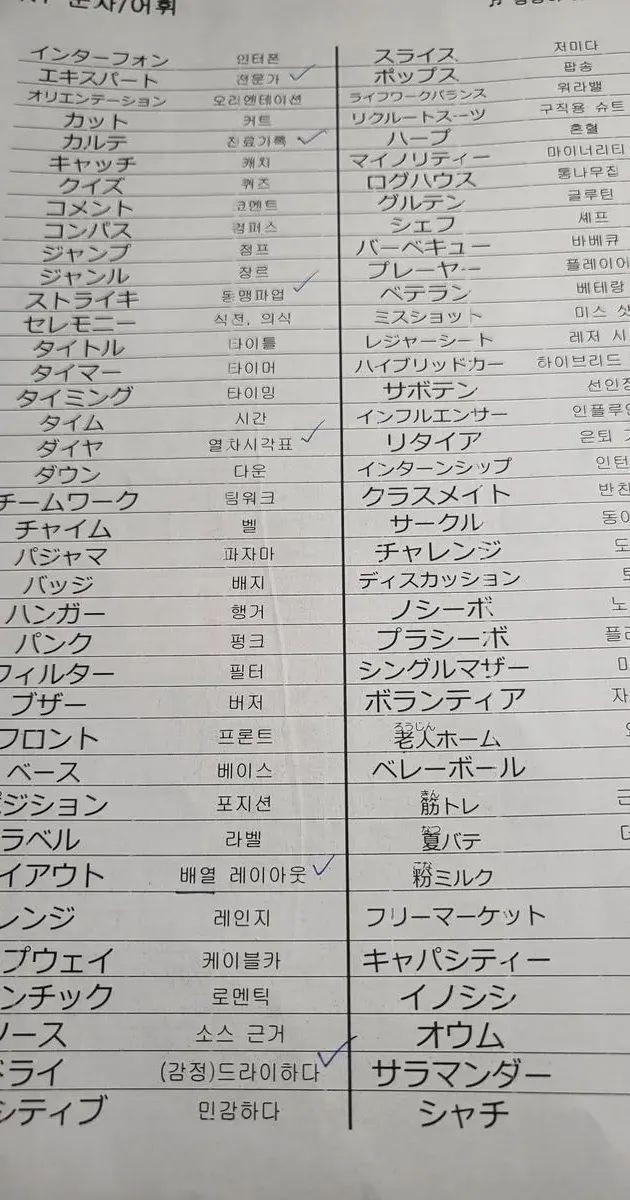 문자/어휘
インターフォン 인터폰
エキスパート 전문가
オリエンテーション 오리엔테이션
カット 커트
カルテ 진료기록
キャッチ 캐치
クイズ 퀴즈
コメント 코멘트
コンパス 컴퍼스
ジャンプ 점프
ジャンル 장르
ストライキ 동맹파업
セレモニー 식전, 의식
タイトル 타이틀
タイマー 타이머
タイミング 타이밍
タイム 시간
ダイヤ 열차시각표
ダウン 다운
チームワーク 팀워크
チャイム 벨
パジャマ 파자마
バッジ 배지
ハンガー 행거
パンク 펑크
フィルター 필터
ブザー 버저
フロント 프론트
ベース 베이스
ジション 포지션
ラベル 라벨
イアウト 배열 레이아웃
レンジ 레인지
プウェイ 케이블카
ンチック 로멘틱
ソース 소스 근거
ドライ (감정)드라이하다
シティブ 민감하다
スライス 저미다
ポップス 팝송
ライフワークバランス 워라밸
リクルートスーツ 구직용 슈트
ハーフ 혼혈
マイノリティー 마이너리티
ログハウス 통나무집
グルテン 글루틴
シェフ 셰프
バーベキュー 바베큐
プレーヤー 플레이어
ベテラン 베테랑
ミスショット 미스 샷
レジャーシート 레저 시
ハイブリッドカー 하이브리드
サボテン 선인장
インフルエンサー 인플루언
リタイア 은퇴
インターンシップ 인턴
クラスメイト 반친
サークル 동아
チャレンジ 도
ディスカッション 토
ノシーボ 노
プラシーボ 플라
シングルマザー
ボランティア 자
老人ホーム
ろうじん
ベレーボール
筋トレ
きん
夏バテ
なつ
粉ミルク
こな
フリーマーケット
キャパシティー
イノシシ
オウム
サラマンダー
シャチ